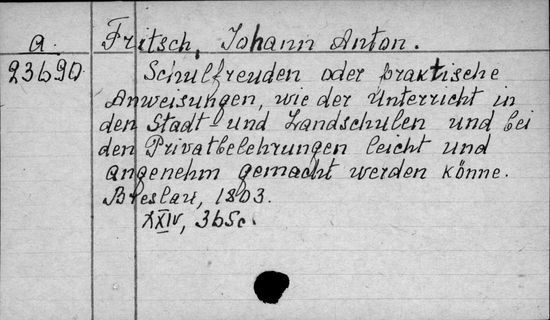 a. Fritsch, Johann Anton.
23690 Schulfreuden oder praktische
Anweisungen, wie der Unterricht in
den Stadt- und Landschulen und bei
den Privatbelehrungen leicht und
angenehm gemacht werden könne.
Breslau, 1803.
XXIV, 36